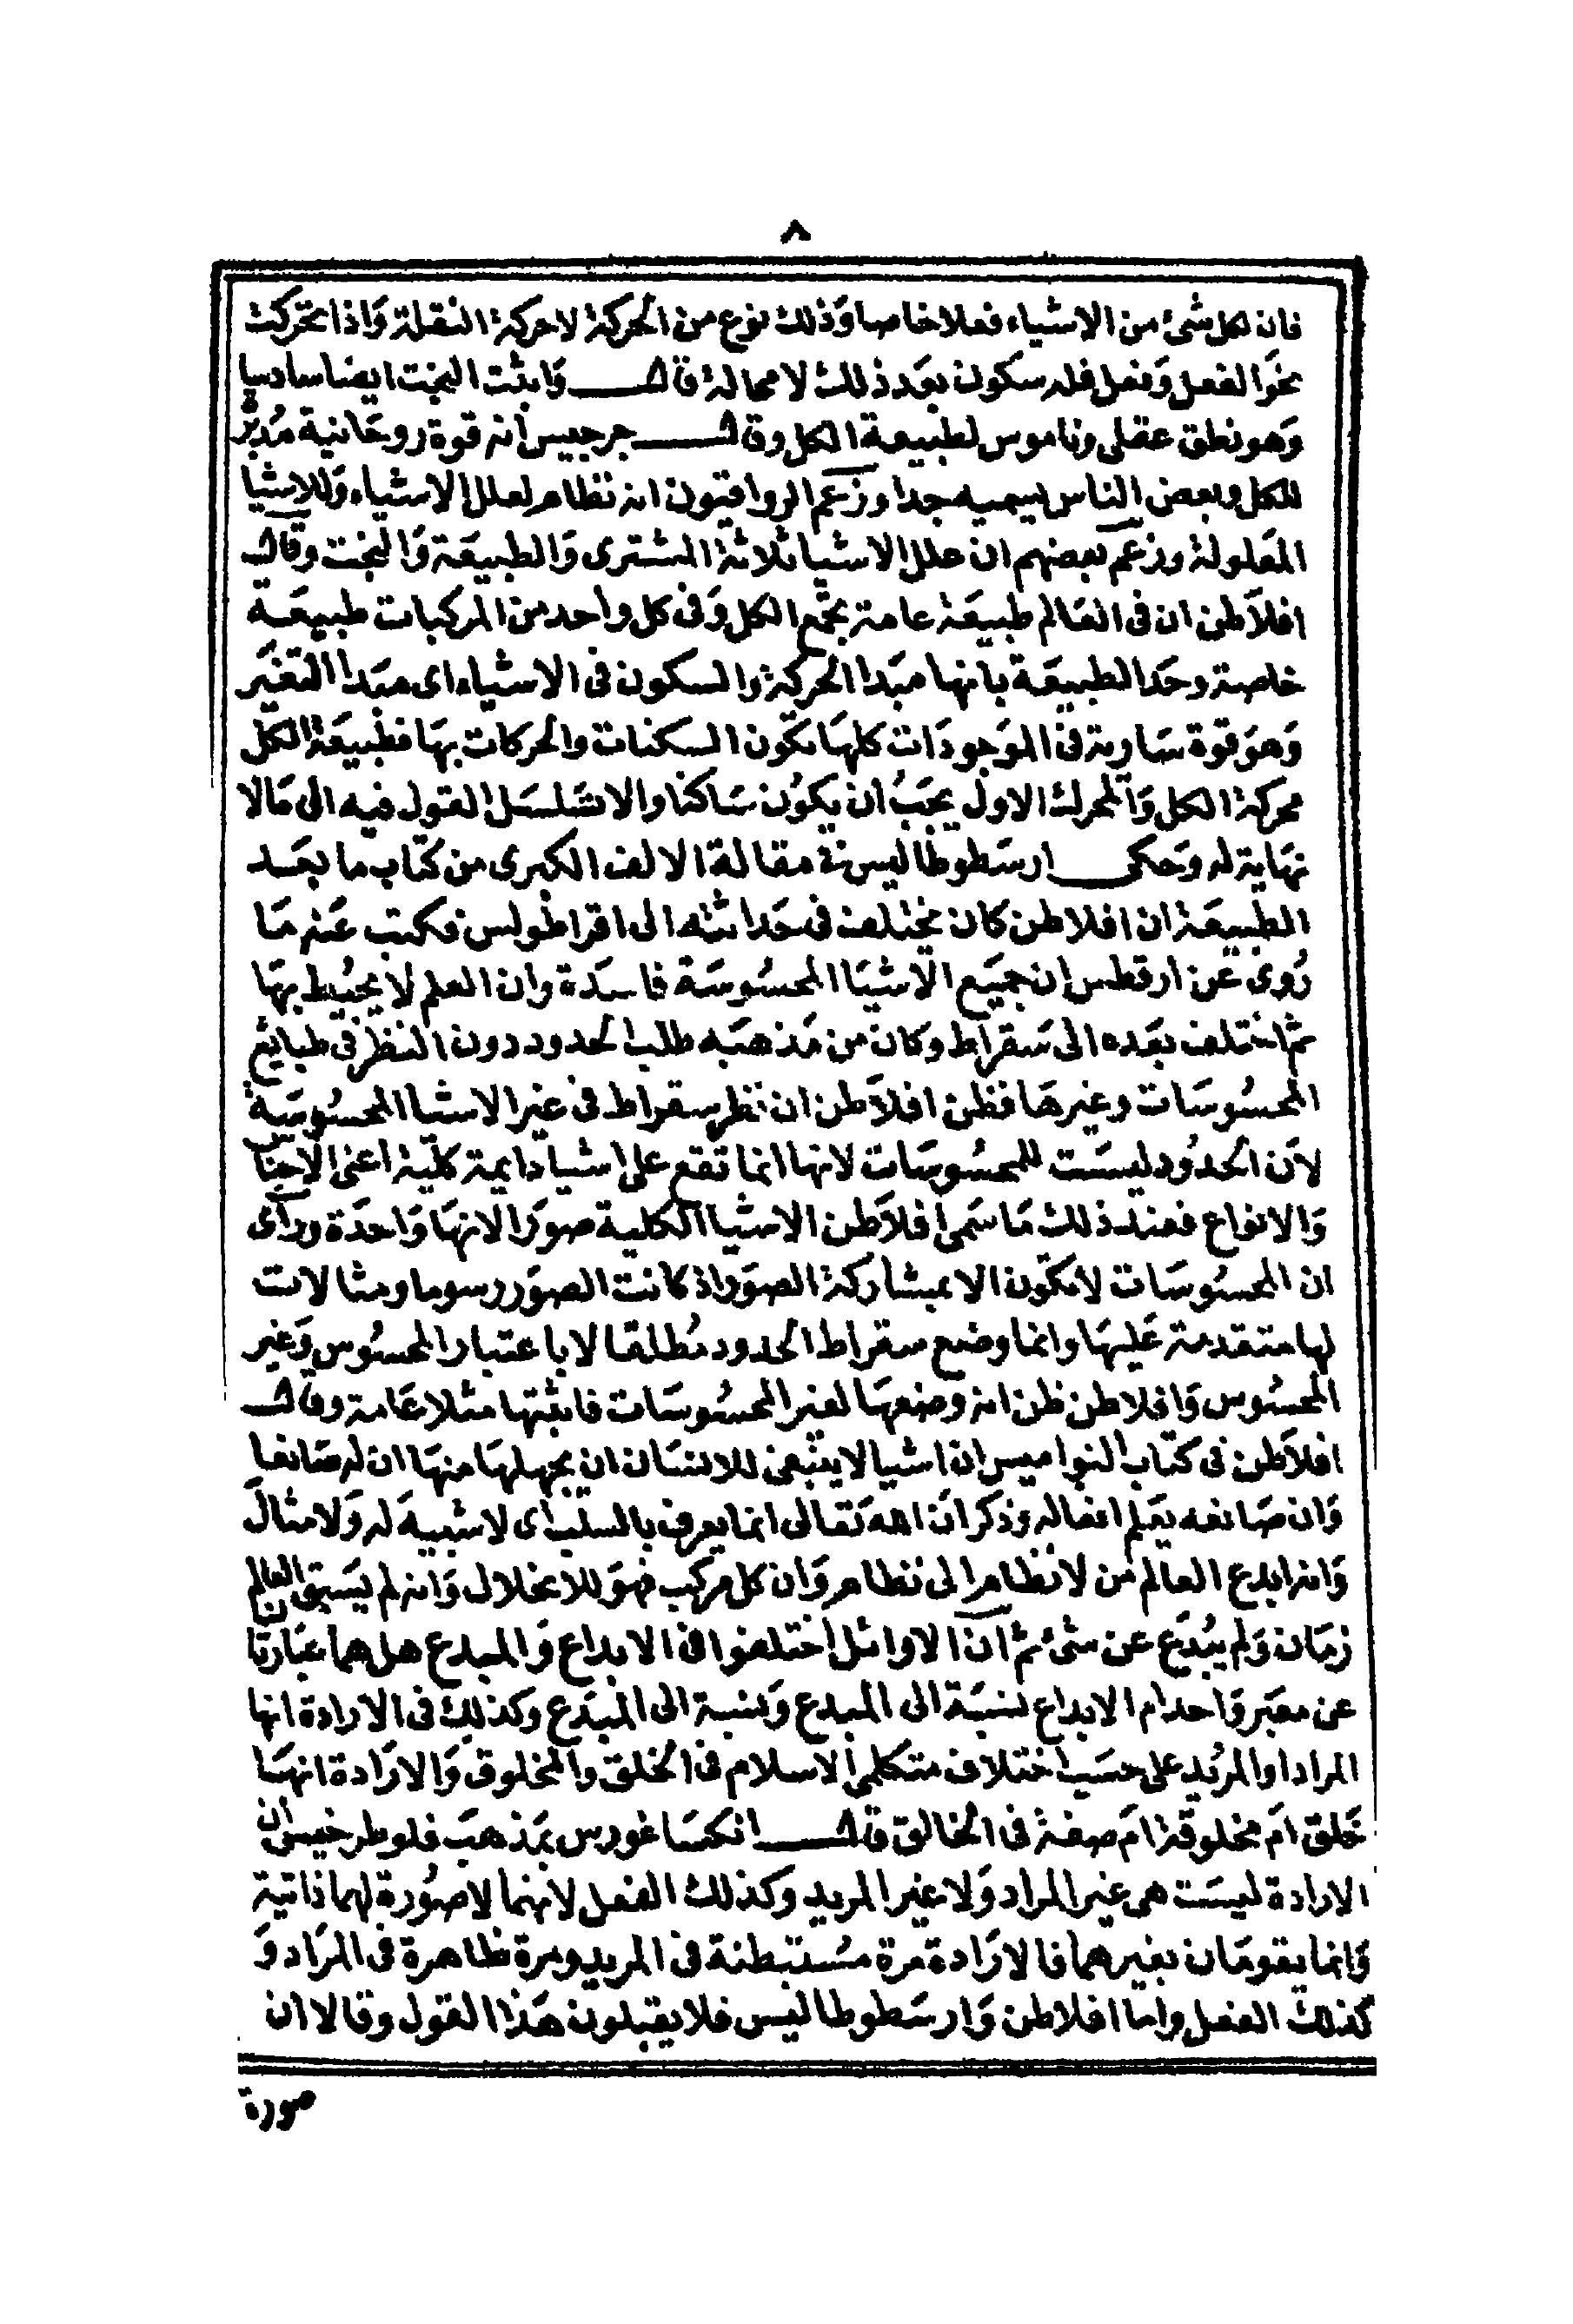 ٨
فان لكل شئ من الاشياء فعلا خاصا وَذلك نوع من الحركة لا حركة النقلة وَاذا تحركت
نحوَ الفعل وَفعل فله سكون بعد ذلك لا محالة قال وَاثبت البخت ايضا سادسا
وَهو نطق عقلى وناموس لطبيعة الكل وقال جرجيس انه قوة روحَانية مُدبرة
للكل وبعض الناس يسميه جدا وزَعَم الرواقيون انه نظام لعلل الاشياء وَللاشيا
المعَلولة وزعَم بعضهم ان علل الاشيا ثلاثة المشترى وَالطبيعَة وَالبخت وقال
افلاَطن ان فى العَالم طبيعَة عامة تجمَع الكل وَفى كل واحد من المركبات طبيعَة
خاصة وحَد الطبيعَة بانها مبَدا الحركة والسكون فى الاشياء اى مبَدا التغيَر
وَهوَ قوة سَارية فى الموَجودَات كلهَا تكوَن السكنات والحركات بهَا فطبيعَة الكل
محركة الكل وَالمحرك الاول يجَبُ ان يكوُن سَاكنا والا تسَلسَل القول فيه الى مَالا
نهَاية له وَحَكى ارسَطوطاليس فى مقالة الالف الكبرى من كتاب ما بعَد
الطبيعَة ان افلاطن كان يختلف فى حَداثته الى اقراطولس فكتب عَنه مَا
رُوى عَن ارقطس ان جميَع الاشيَا المحسُوسَة فاسَدة وان العلم لا يحُيط بهَا
ثم اختلف بعَده الى سَقراَط وكان من مَذهبَه طلب الحدود دون النظر فى طبايع
المحسُوسَات وغيرهَا فظن افلاَطن ان نظر سقراط فى غير الاشيا المحسُوسَة
لاَن الحدُود ليسَت للمحسُوسَات لانها انما تقع على اشيا دَايمة كليَة اعنى الاجناس
وَالانواع فعند ذلك مَا سَمى افلاَطن الاشيا الكلية صوَرا لانهَا وَاحدَة ورَاى
ان المحسُوسَات لا تكوَن الا بمشاَركة الصوَر اذ كانت الصوَر رسوما ومثالات
لها متقدمة عَليهَا وانما وضع سقراط الحدود مُطلقا لا باعتبار المحسُوس وَغير
المحسُوس وَافلاطن ظن انه وضعهَا لغير المحسُوسَات فاثبتها مثلا عَامة وقال
افلاَطن فى كتاب النواميس ان اشيا لا ينبغى للانسَان ان يجهلهَا منهَا ان له صَانعا
وَان صَانعه يعَلم افعاله وَذكر ان الله تعَالى انما يعرف بالسلب اى لا شبيهَ له وَلا مثالَ
وَانه ابدع العالم من لا نظام الى نظام وَان كل مركب فهوَ للانحلال وَانه لم يسَبق العالم
زمَان وَلم يبُدَع عن شئ ثم ان الاوائل اختلفوا فى الابداع وَالمبدع هل هما عبَارتان
عن معبَر وَاحد ام الابداع نسبَة الى المبدع وَنسبة الى المبَدَع وكذلك فى الارادة انها
المراد او المرُيد على حسَب اختلاف متكلمى الاسلام فى الخلق والمخلوق وَالارَادة انهَا
خَلق امَ مخلوقَة امَ صفة فى الخالق قال انكسَاغورس بمَذهبَ فلوطرخيس ان
الارادة ليسَت هى غير المراد وَلا غير المريد وكذلك الفعل لانهما لا صُورة لهما ذاتية
وَانما يقومَان بغيرهما فالارَادة مرة مسُتبطنة فى المريد ومرة ظاهرة فى المرَاد وَ
كذلك الفعل واما افلاطن وَارسَطوطاليس فلا يقبلون هَذا القول وقالا ان
صورة